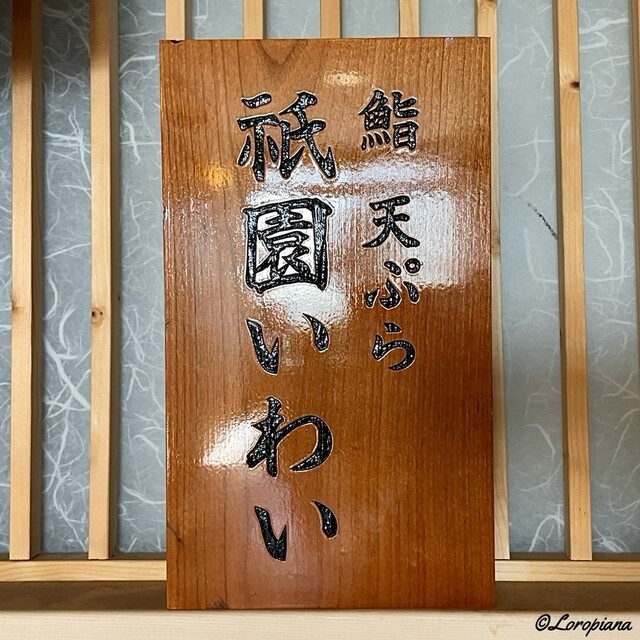 鮨 天ぷら
祇園いわい
©Loropiana